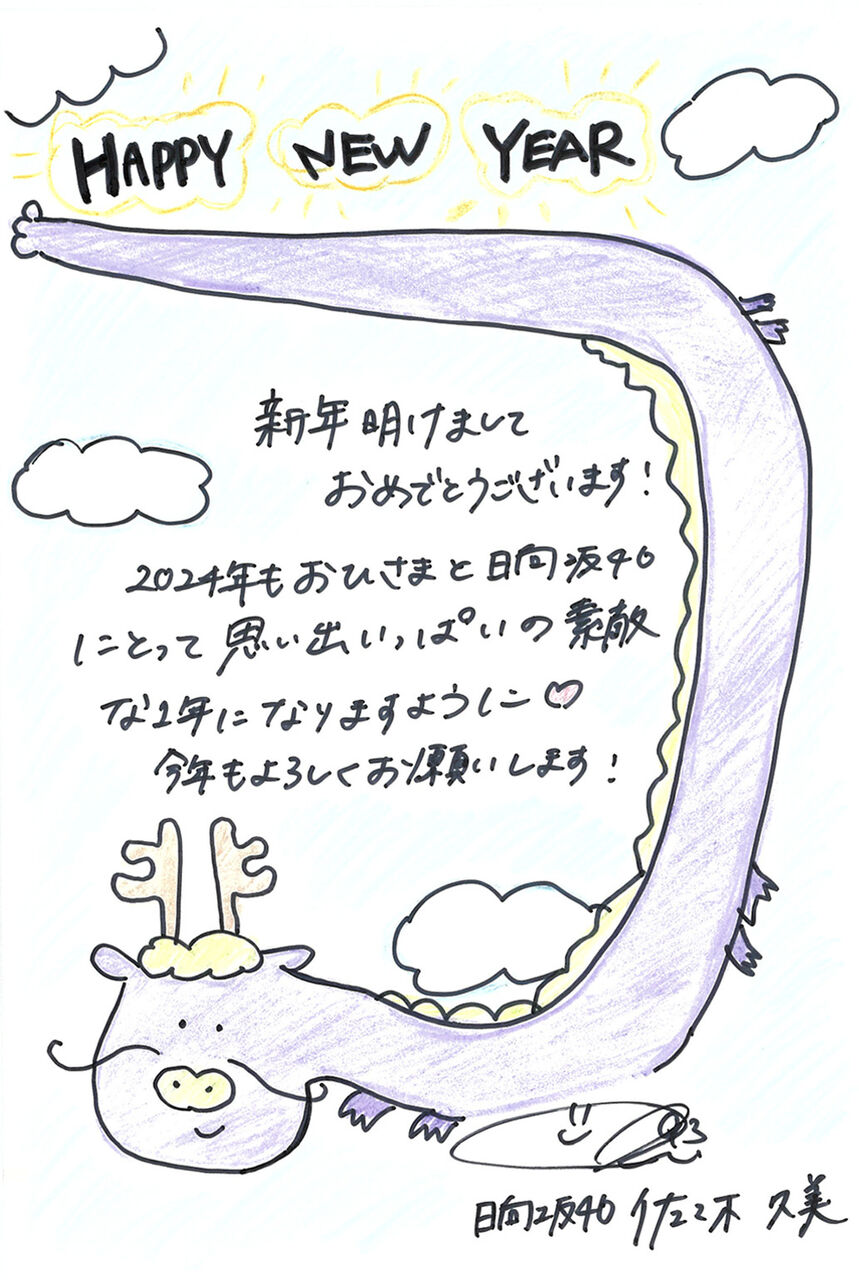 HAPPY NEW YEAR
新年明けまして
おめでとうございます!
2024年もおひさまと日向坂40
にとって思い出いっぱいの素敵
な1年になりますように♡
今年もよろしくお願いします!
日向坂40 佐々木 久美